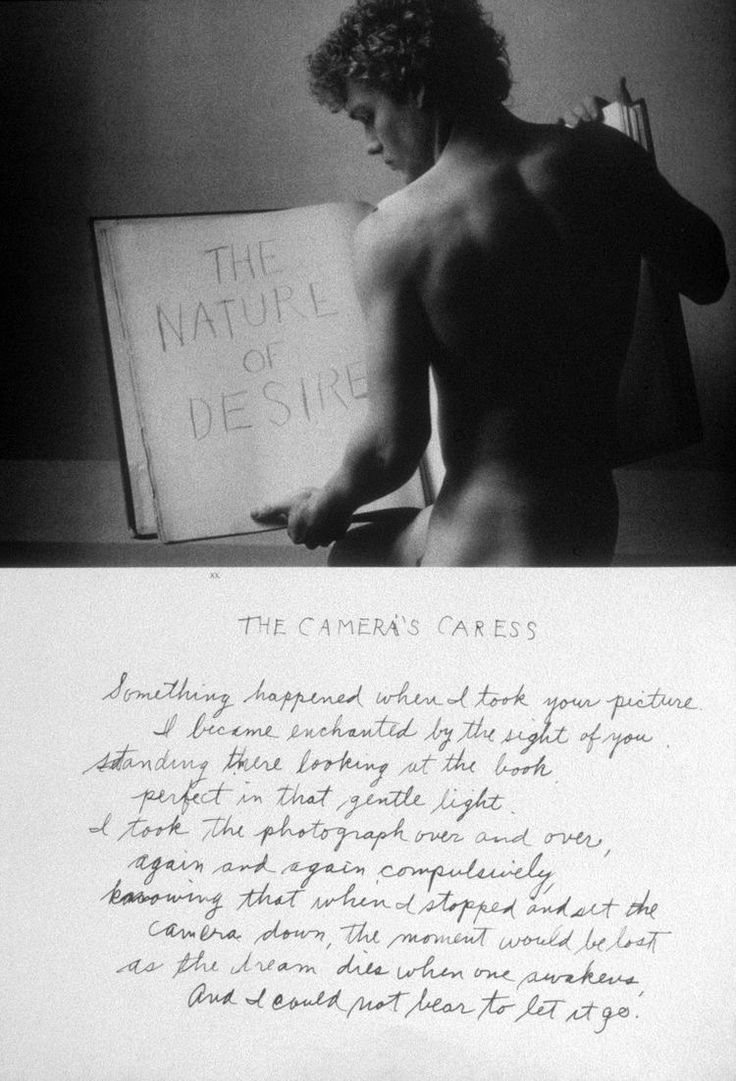 THE
NATURE
OF
DESIRE
XX
THE CAMERA'S CARESS
Something happened when I took your picture.
I became enchanted by the sight of you
standing there looking at the book,
perfect in that gentle light.
I took the photograph over and over,
again and again compulsively,
knowing that when I stopped and set the
camera down, the moment would be lost
as the dream dies when one awakens,
And I could not bear to let it go.